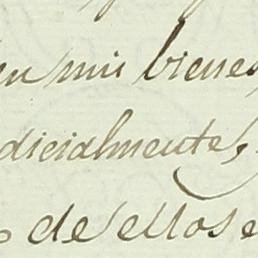 en mis bienes
dicialmente,
de ellos e